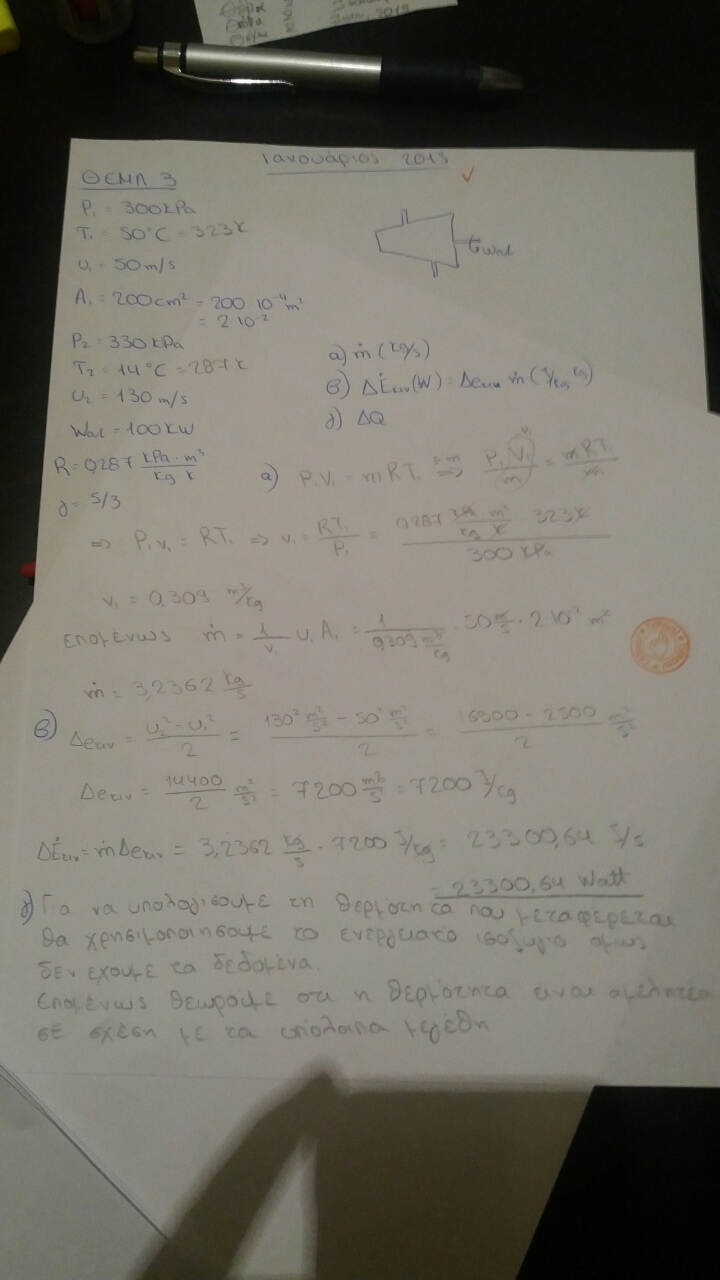 Θέμα
Θέμα
Ιανουάριος 2015
ΘΕΜΑ 3
P₁ = 300kPa
T₁ = 50°C = 323K
U₁ = 50m/s
A₁ = 200cm² = 200 10⁻⁴m²
= 2·10⁻²
P₂ = 330kPa
T₂ = 14°C = 287K
U₂ = 130m/s
Wαξ = 100KW
R = 0,287 kPa·m³/kg K
γ = 5/3
Wαξ
α) ṁ (kg/s)
β) ΔĖκιν(W) = Δeκιν ṁ (J/kg kg)
γ) ΔQ
α) P₁V₁ = mRT₁ ÷m ⇒ P₁V₁/m = mRT₁/m
⇒ P₁v₁ = RT₁ ⇒ v₁ = RT₁/P₁ = 0,287 kPa·m³/kg K · 323K / 300 kPa
v₁ = 0,309 m³/kg
επομένως ṁ = 1/v₁ U₁ A₁ = 1/0,309 m³/kg · 50 m/s · 2 10⁻² m²
ṁ = 3,2362 kg/s
β) Δeκιν = U₂² - U₁²/2 = 130² m²/s² - 50² m²/s²/2 = 16900 - 2500/2 m²/s²
Δeκιν = 14400/2 m²/s² = 7200 m²/s² = 7200 J/kg
ΔĖκιν = ṁ Δeκιν = 3,2362 kg/s · 7200 J/kg = 23300,64 J/s
= 23300,64 Watt
γ) Για να υπολογισουμε τη θερμότητα που μεταφέρεται
θα χρησιμοποιησουμε το ενεργειακό ισοζυγιο ομως
δεν εχουμε τα δεδομένα.
Επομένως θεωρουμε οτι η θερμότητα ειναι αμελητέα
σε σχέση με τα υπόλοιπα μεγέθη